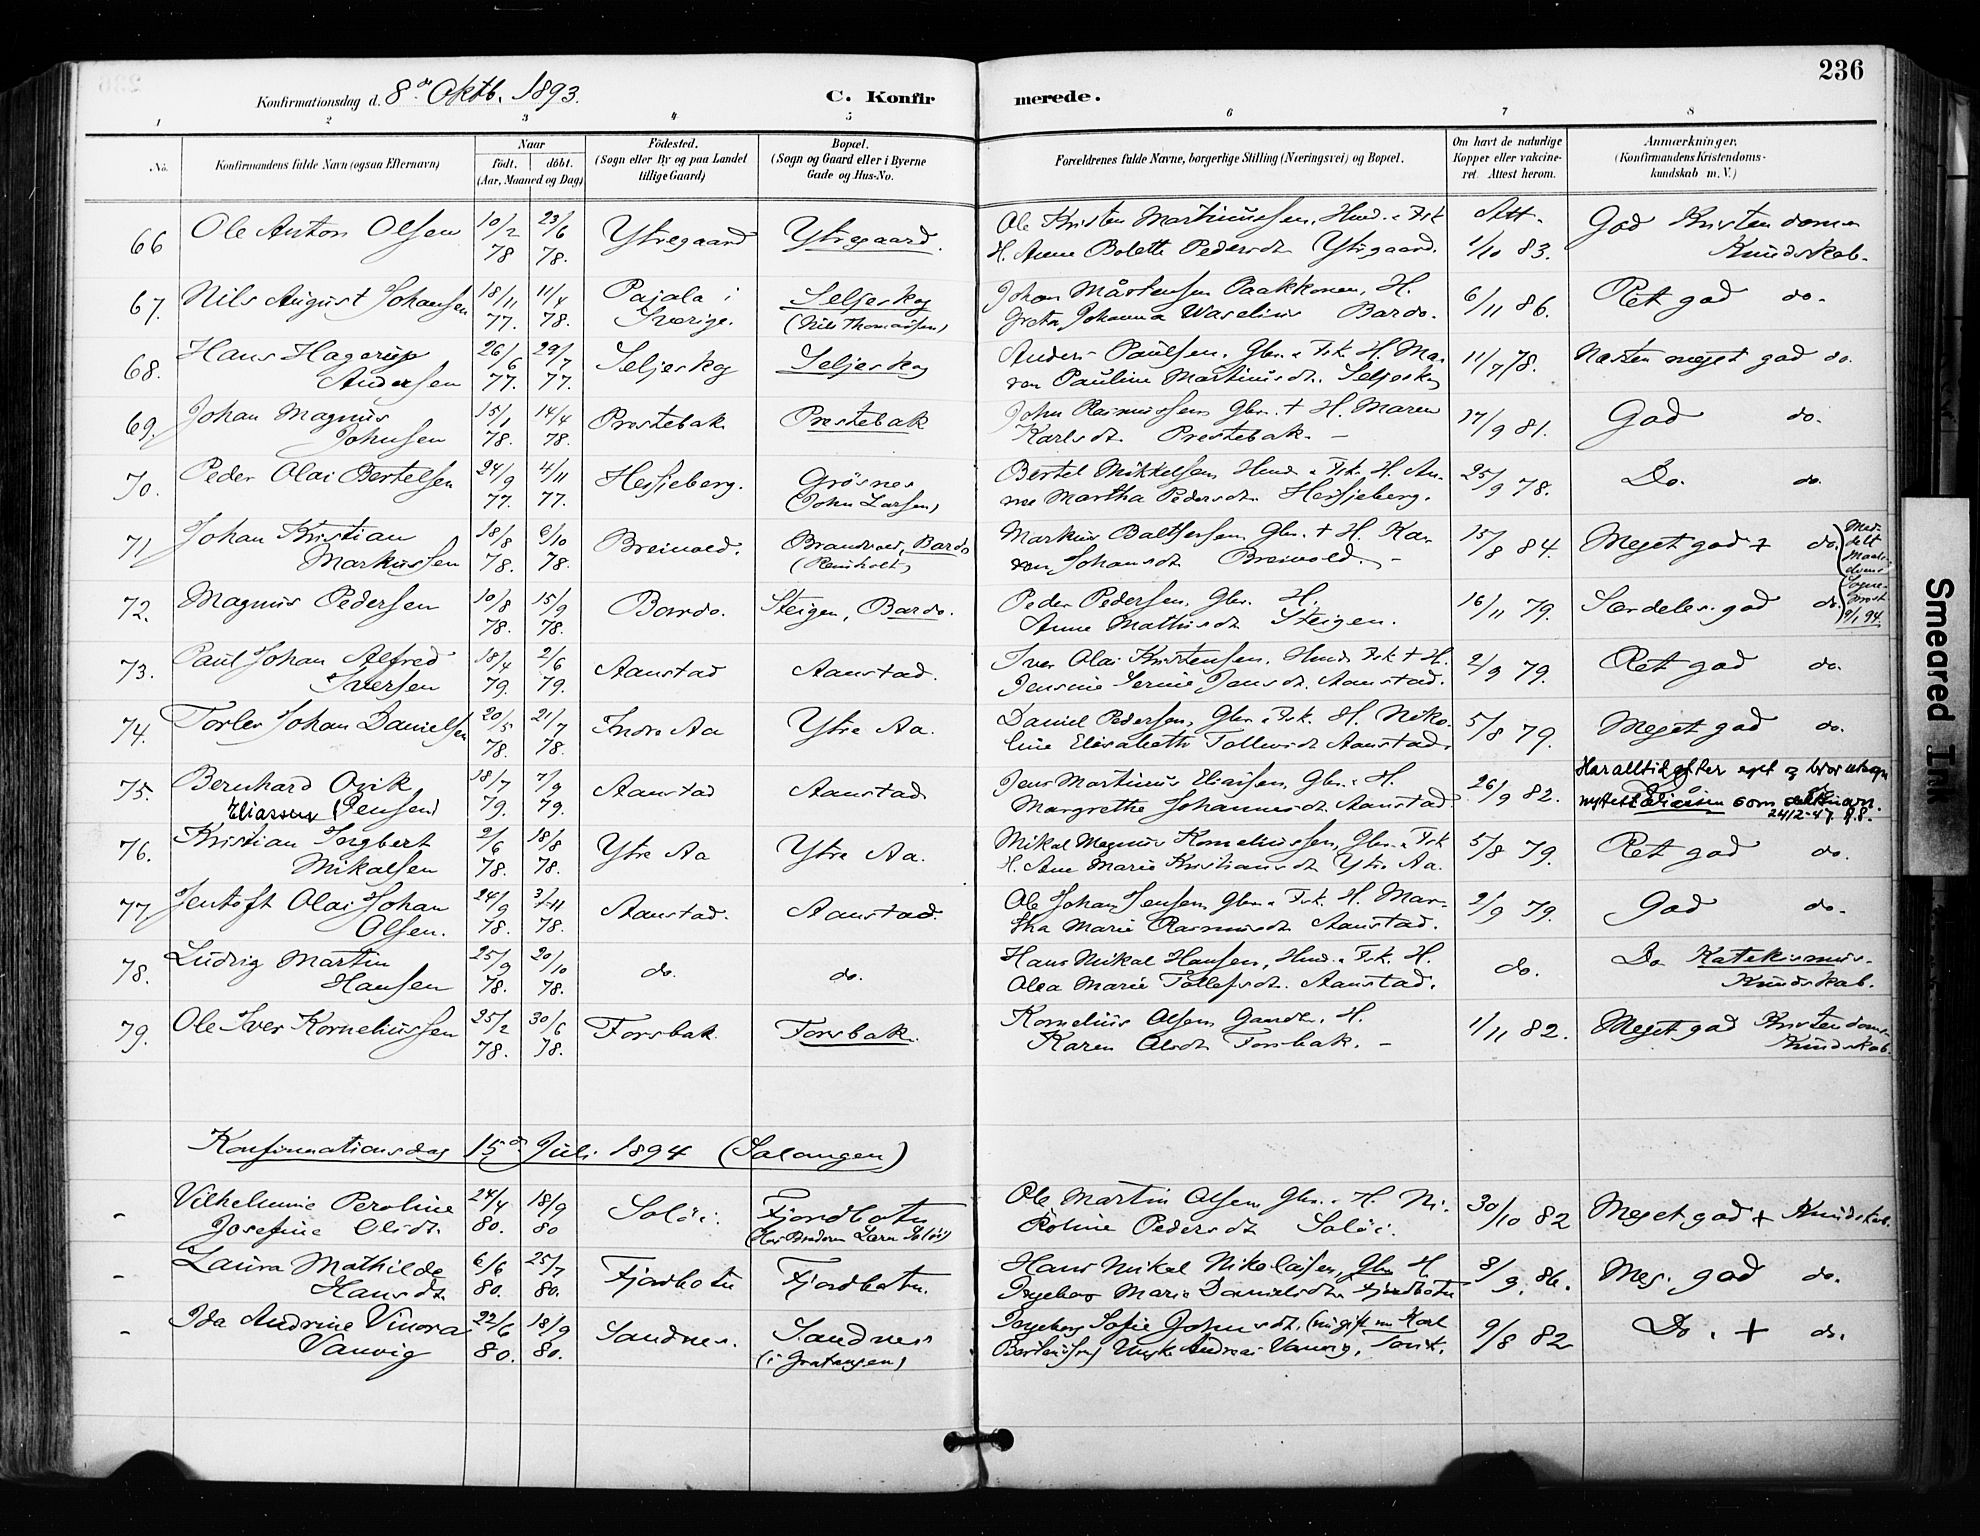 236
Konfirmationsdag d. 8de Oktb. 1893. C. Konfirmerede.
1 2 3 4 5 6 7 8
No. Konfirmandens fulde Navn (ogsaa Efternavn) Naar født. døbt. (Aar, Maaned og Dag) Fødested. (Sogn eller By og paa Landet tillige Gaard) Bopæl. (Sogn og Gaard eller i Byerne Gade og Hus-No. Forældrenes fulde Navne, borgerlige Stilling (Næringsvei) og Bopæl. Om havt de naturlige Kopper eller vakcineret. Attest herom. Anmærkninger. (Konfirmandens Kristendomskundskab m. V.)
66 Ole Anton Olsen 10/2 23/6 Ytregaard Ytregaard. Ole Kristen Martinussen, Hmd. & Fsk Att. God Kristendoms
78 78. H. Anne Bolette Pedersdt. Ytregaard. 1/10 83. Kundskab.
67. Nils August Johansen 18/11 11/4 Pajala i Seljeskog Johan Mårtensen Paakkonen, H. 6/11 86. Ret god do.
77. 78. Sverige. (Nils Thomassen) Greta Johanna Waselius Bardo.
68. Hans Hagerup 26/6 29/7 Seljeskog Seljeskog Anders Paulsen, Gbr. & Fsk. H. Ma- 11/7 78. Næsten meget god do.
Andersen 77. 77. ren Pauline Martinusdt. Seljeskog
69. Johan Magnus 15/1 14/4 Prestebak Prestebak John Rasmussen Gbr. + H. Maren 17/9 81. God do.
Johnsen 78. 78. Karlsdt. Prestebak. –
70. Peder Olai Bertelsen 24/9 4/11 Hesjeberg. Grösnes Bertel Mikkelsen Hmd. & Fsk. H. An- 25/9 78. Do. do.
77. 77. (John Larsen) ne Martha Pedersdt. Hesjeberg.
71 Johan Kristian 18/8 6/10 Breivold. Brandvold, Bardo Markus Balthersen Gbr. + H. Ka- 15/8 84. Meget god + do. Med-
Markussen 78. 78. ren Johansdt. Breivold. – delt
72. Magnus Pedersen 10/8 15/9 Bardo. Steigen, Bardo. Peder Pedersen, Gbr. H. 16/11 79. Særdeles god do. Sogne-
78. 78. Anne Mathisdt. Steigen. 9/1 94.
73. Paul Johan Alfred 18/4 2/6 Aanstad Aanstad. Iver Olai Kristensen, Hmd. Fsk + H. 2/9 79. Ret god do.
Iversen 79. 79. Jensine Serine Jensdt. Aanstad.
74. Torlev Johan Danielsen 20/5 21/7 Indre Aa Ytre Aa. Daniel Pedersen, Gbr. & Fsk. H. Niko- 5/8 79. Meget god do.
78. 78. line Elisabeth Tollevsdt. Aanstad.
75. Bernhard Ovik 18/7 7/9 Aanstad Aanstad. Jens Martinus Eliassen, Gbr. & H. 26/9 82. Har alltid efter eget
Eliassen (Jensen) 79. 79. Margrethe Johannesdt. Aanstad nyttet Eliassen som
24/2-47.
76. Kristian Ingbert 2/6 18/8 Ytre Aa Ytre Aa. Mikal Magnus Korneliussen, Gbr. & Fsk 5/8 79. Ret god do.
Mikalsen 78. 78. H. Ane Marie Kristiansdt. Ytre Aa.
77. Jentoft Olai Johan 24/9 3/11 Aanstad. Aanstad. Ole Johan Jensen, Gbr. & Fsk. H. Mar- 2/9 79. God do.
Olsen. 78. 78. tha Marie Rasmusdt. Aanstad.
78. Ludvig Martin 25/9 20/10 do. do. Hans Mikal Hansen, Hmd. & Fsk. H. do. Do Katekismus-
Hansen 78. 78. Olea Marie Tollefsdt. Aanstad. Kundskab.
79. Ole Iver Korneliussen 25/2 30/6 Forsbak. Forsbak. Kornelius Olsen, Gaardb. H. 1/11 82. Meget god Kristendoms
78. 78. Karen Olsdt. Forsbak. – Kundskab.
Konfirmationsdag 15de Juli 1894 (Salangen)
- Vilhelmine Peroline 24/4 18/9 Soløi. Fjordbotn Ole Martin Olsen Gbr. & H. Ni- 30/10 82 Meget god + Kundskab.
Josefine Olsdt. 80. 80 koline Pedersdt. Soløi.
- Laura Mathilde 6/6 25/7 Fjordbotn Fjordbotn. Hans Mikal Nikolaisen, Gbr. H. 8/9. 86. Meg. god do.
Hansdt. 80. 80. Ingebor Marie Danielsdt. Fjordbotn
- Ida Andrine Vinora 22/6 18/9 Sandnes. Sandnes Ingeborg Sofie Johnsdt. (nu gift m. Karl 9/8 82 Do. + do.
Vanvig 80. 80. (i Gratangen) Berteussen) Ungk. Andreas Vanvig,
Smeared Ink